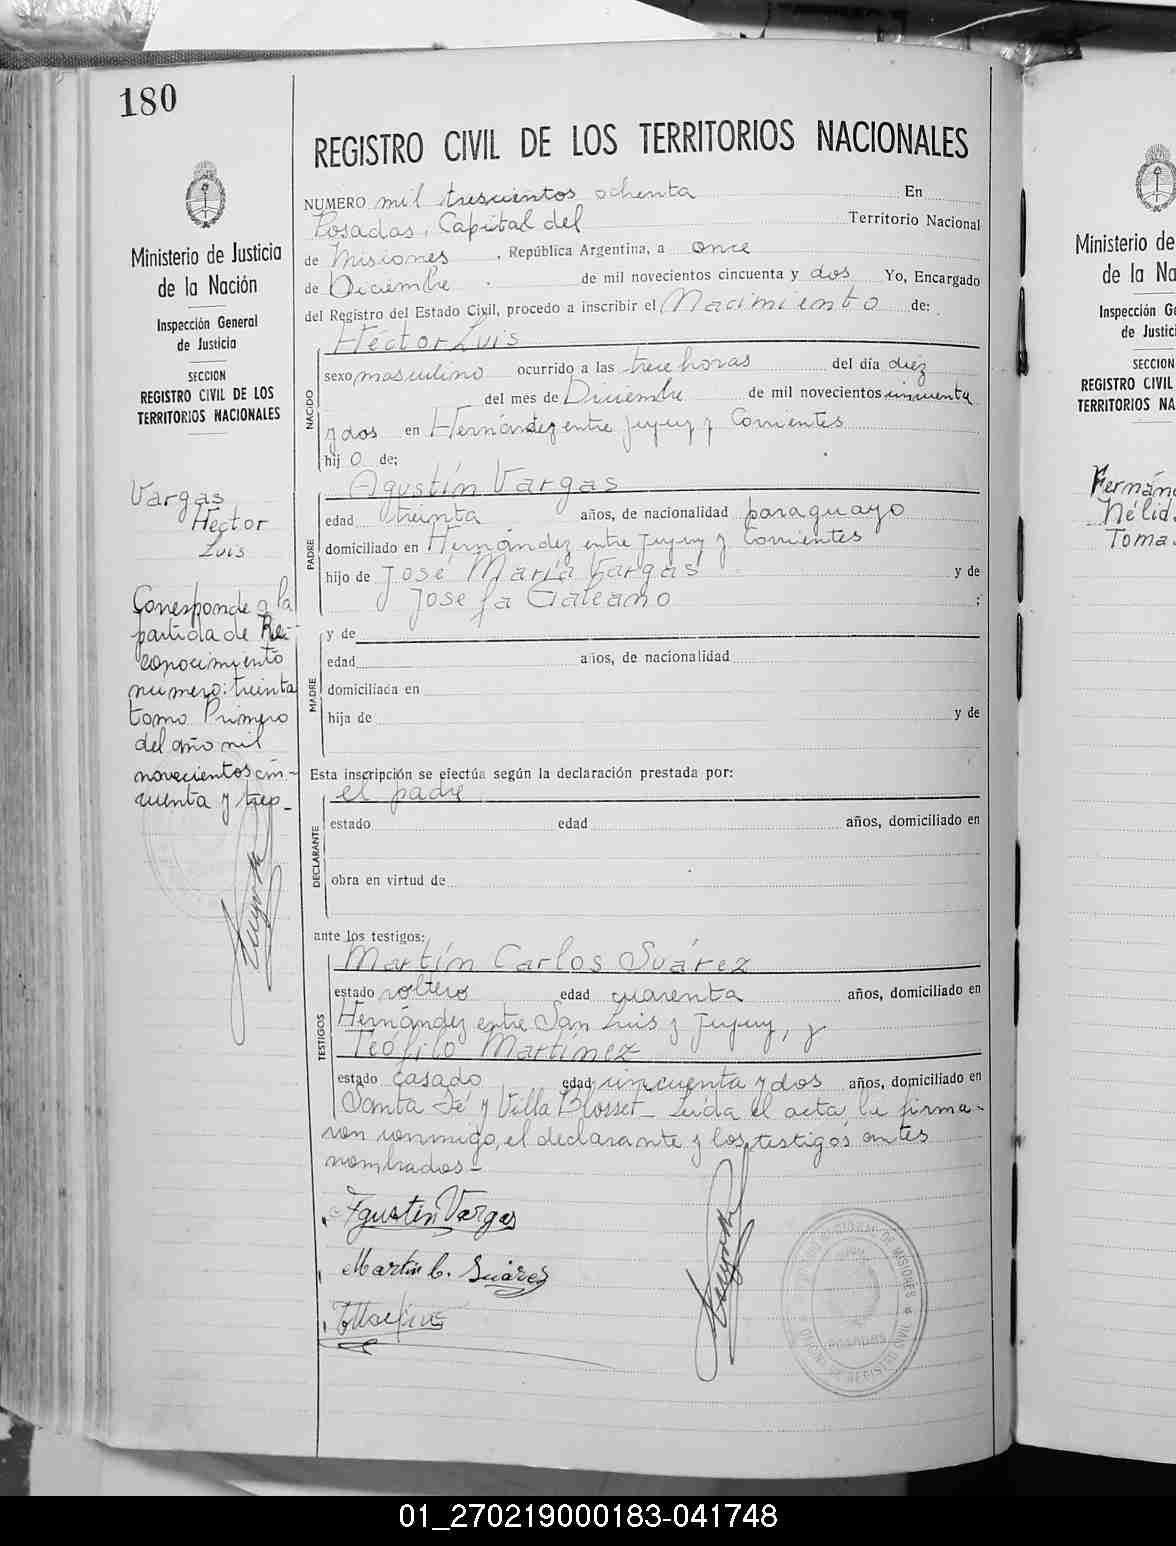 180
REGISTRO CIVIL DE LOS TERRITORIOS NACIONALES
Ministerio de Justicia
de la Nación
Inspección General
de Justicia
SECCION
REGISTRO CIVIL DE LOS
TERRITORIOS NACIONALES
Vargas
Héctor
Luis
Corresponde a la
partida de Re-
conocimiento
numero: treinta
tomo Primero
del año mil
novecientos cin-
cuenta y tres_
NUMERO mil trescientos ochenta En
Posadas, Capital del Territorio Nacional
de Misiones, República Argentina, a once
de Diciembre de mil novecientos cincuenta y dos Yo, Encargado
del Registro del Estado Civil, procedo a inscribir el Nacimiento de:
Héctor Luis
NACIDO
sexo masculino ocurrido a las trece horas del día diez
del mes de Diciembre de mil novecientos cincuenta
y dos en Hernández entre Jujuy y Corrientes
hijo de;
Agustín Vargas
PADRE
edad treinta años, de nacionalidad paraguayo
domiciliado en Hernández entre Jujuy y Corrientes
hijo de José María Vargas y de
Josefa Galeano ;
y de
MADRE
edad años, de nacionalidad
domiciliada en
hija de y de
Esta inscripción se efectúa según la declaración prestada por:
el padre
DECLARANTE
estado edad años, domiciliado en
obra en virtud de
ante los testigos:
Martín Carlos Suárez
TESTIGOS
estado soltero edad cuarenta años, domiciliado en
Hernández entre San Luis y Jujuy, y
Teófilo Martínez
estado casado edad cincuenta y dos años, domiciliado en
Santa Fé y Villa Blosset_ Leída el acta, la firma-
ron conmigo, el declarante y los testigos antes
nombrados_
Agustin Vargas
Martin C. Suárez
POSADAS
Ministerio de
de la Na
Inspección Ge
de Justici
SECCION
REGISTRO CIVIL
TERRITORIOS NA
Fernán
Nélid
Tomas
01_270219000183-041748